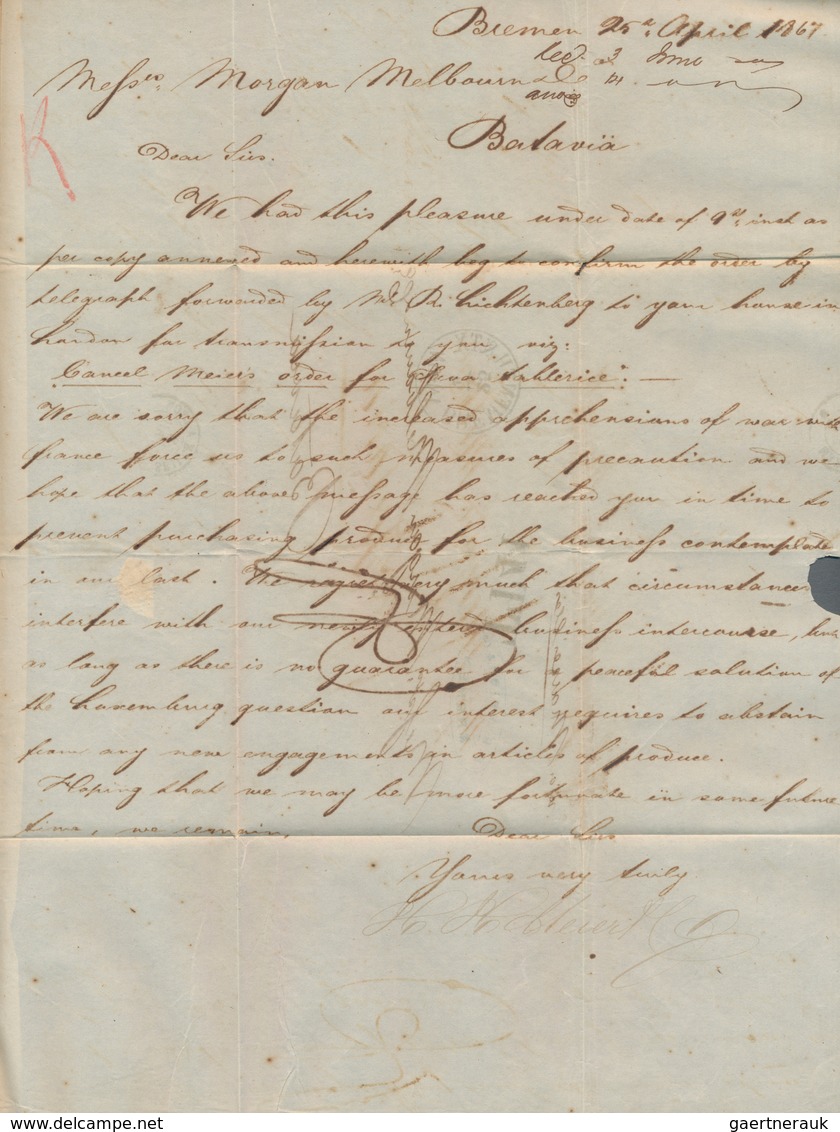 Bremen 25th April 1867
Recd 3 June
ans
Messrs Morgan Melbourn & Co
Batavia
Dear Sirs.
We had this pleasure under date of 9th inst as
per copy annexed and herewith beg to confirm the order by
telegraph forwarded by Mr R. Lichtenberg to your house in
London for transmission to you viz:
"Cancel Meiers order for Java tablerice". —
We are sorry that the increased apprehensions of war with
france force us to such measures of precaution and we
hope that the above message has reached you in time to
prevent purchasing produce for the business contemplate
in our last. We regret very much that circumstances
interfere with our newly business intercourse, but
as long as there is no guarantee for peaceful solution of
the Luxemburg question our interest requires to abstain
from any new engagements in articles of produce.
Hoping that we may be more fortunate in some future
time, we remain, Dear Sirs
Yours very truly
H. H. Meier & Co
delcampe.net
gaertnerauk